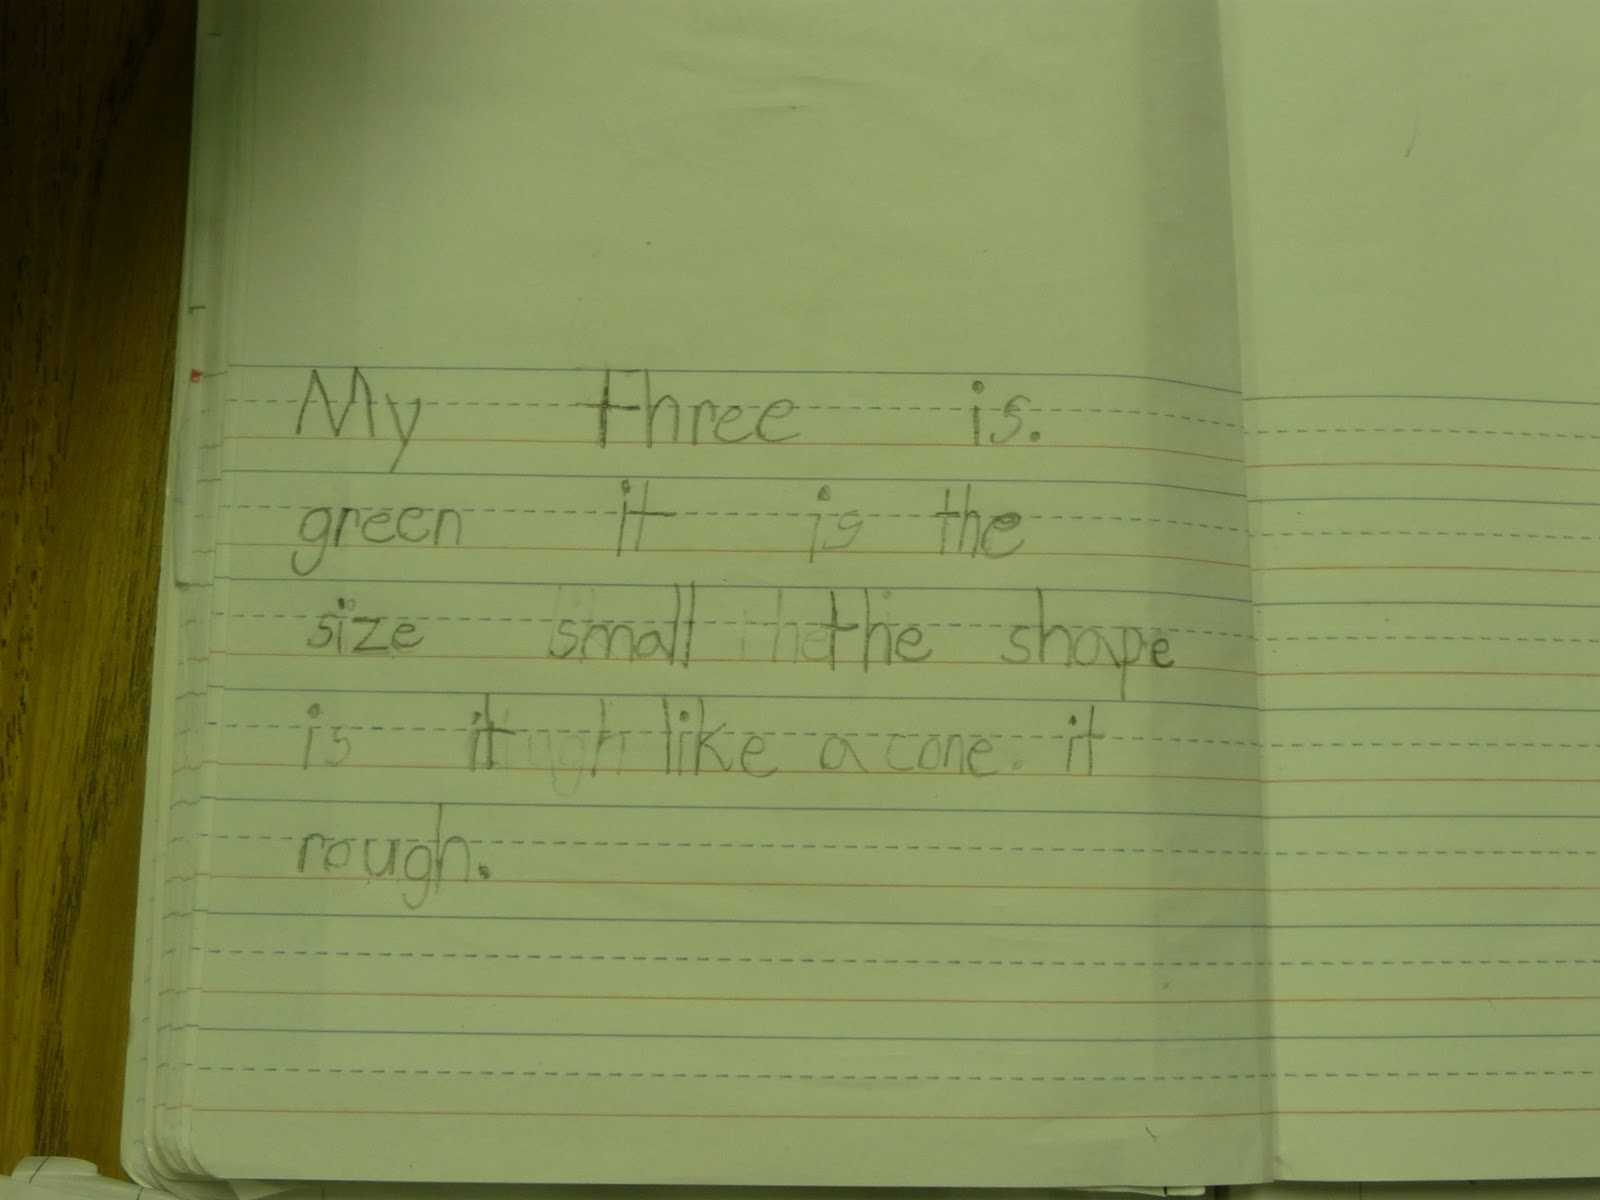 My three is.
green it is the
size small the shape
is it like a cone. it
rough.